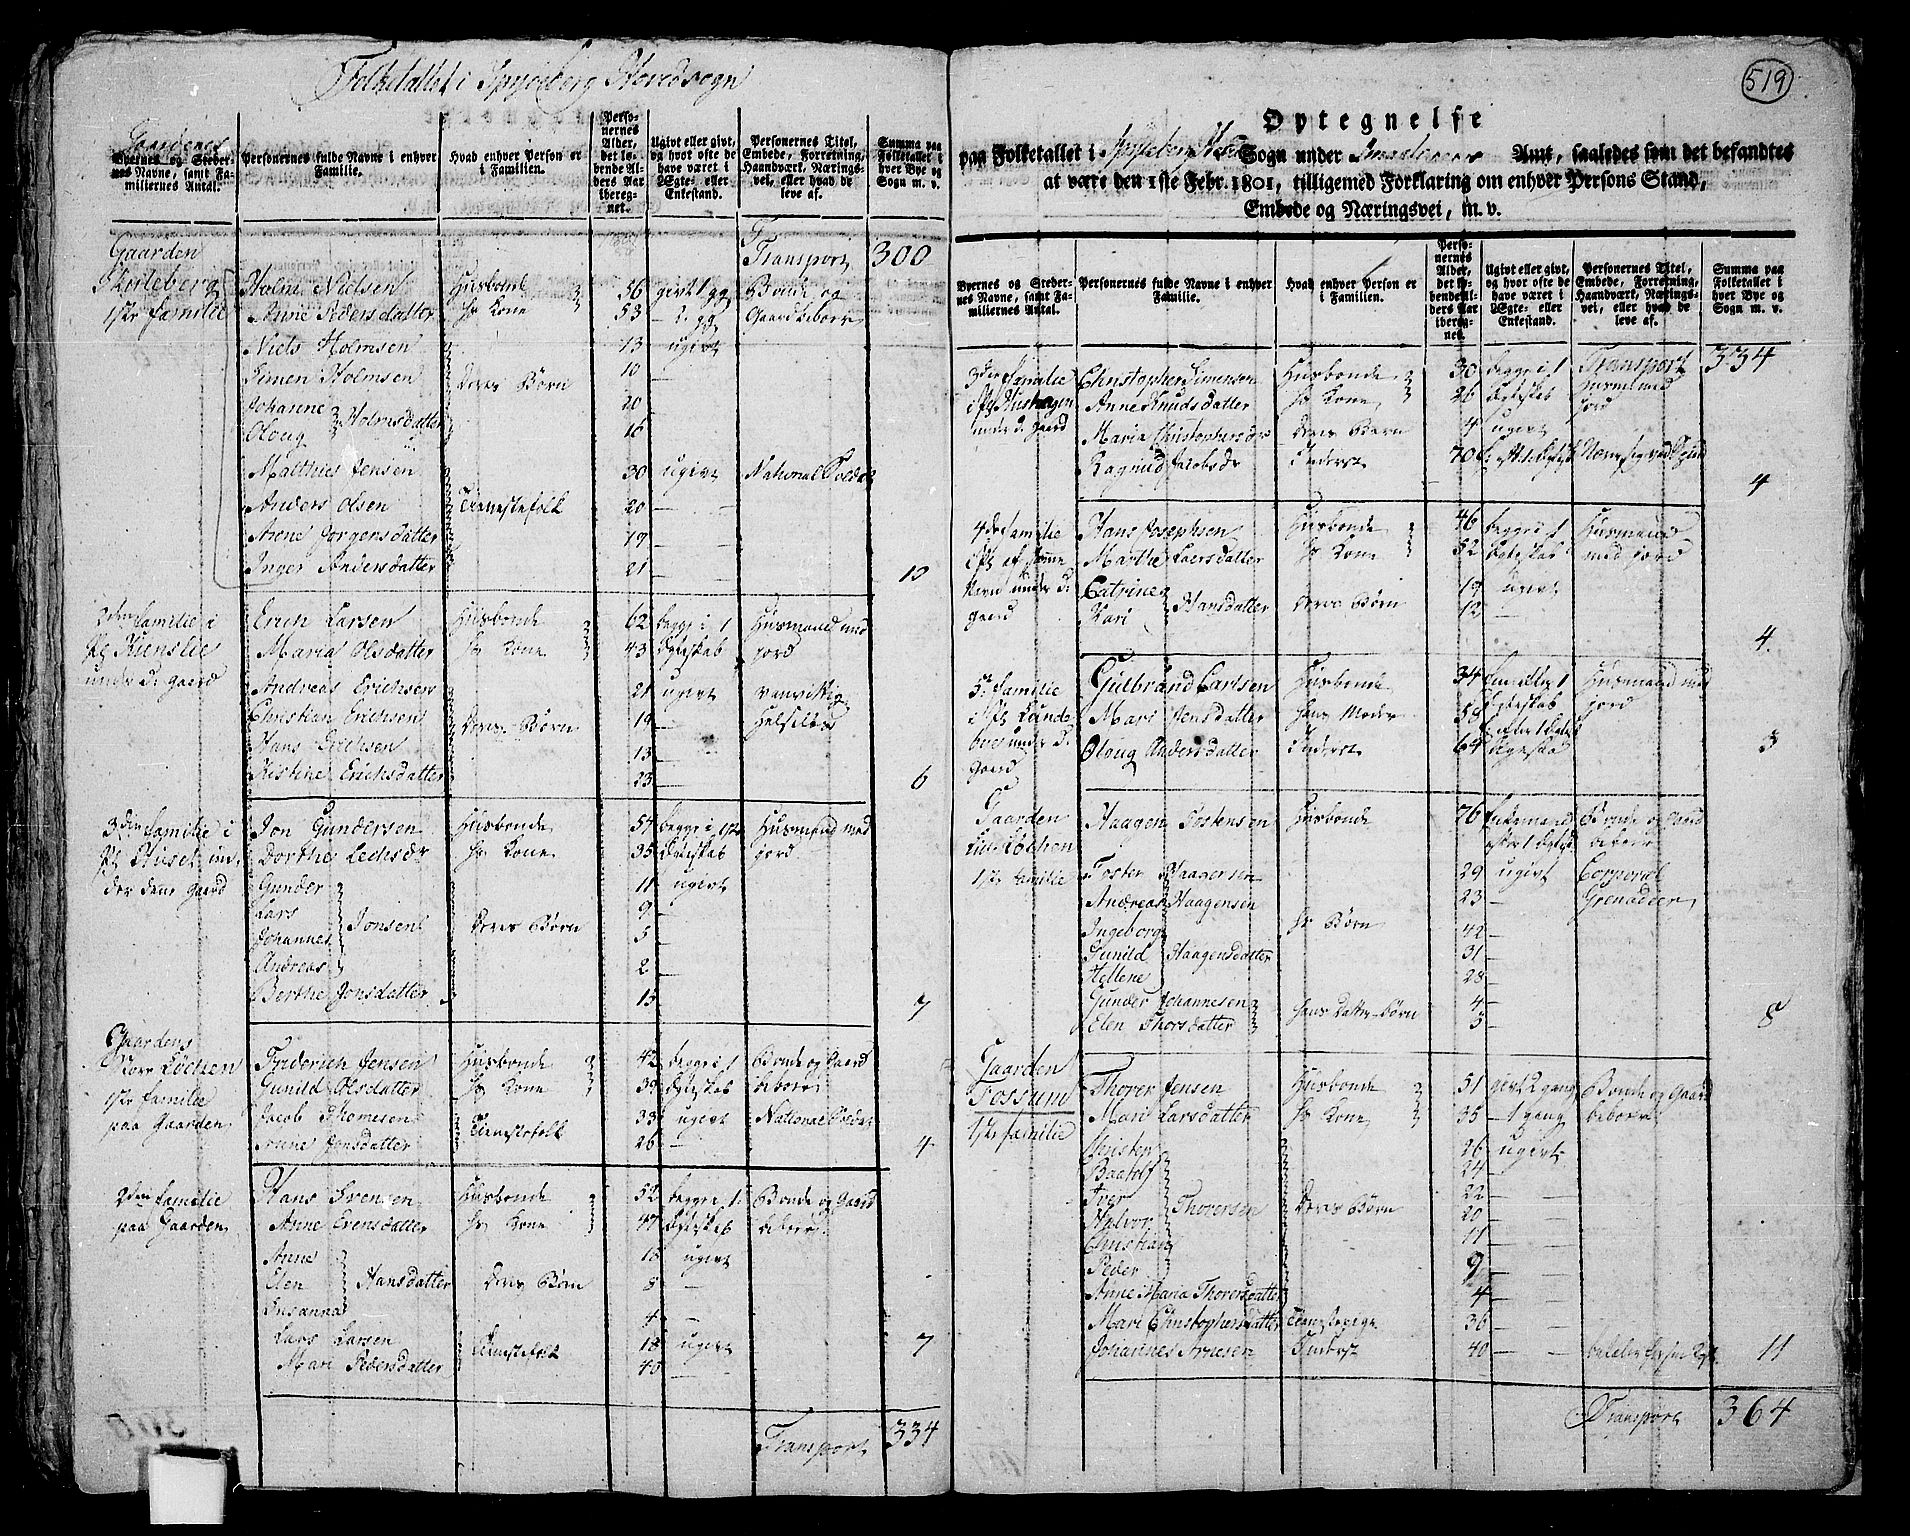 Folketallet i Spydeberg Hovedsogn
Gaardenes
Byernes og Stedernes Navne, samt Familiernes Antal.
Personernes fulde Navne i enhver Familie.
Hvad enhver Person er i Familien.
Personernes Alder, det løbende Alders Aar iberegnet.
Ugivt eller givt, og hvor ofte de have været i Ægte- eller Enkestand.
Personernes Titel, Embede, Forretning, Haandværk, Næringsvei, eller hvad de leve af.
Summa paa Folketallet i hver Bye og Sogn m. v.
Transport 300
Gaarden
Skuleberg
1ste familie
Holm Nielsen Husbonde 56 givt 1 gg Bonde og
Anne Pedersdatter hs Kone 53 — 2 gg Gaardbeboer
Niels Holmsen 13 ugivt
Simen Holmsen Deres Børn 10 —
Johanne 20 —
Oloug Holmsdatter 16 —
Matthies Jensen 30 ugivt National Soldat
Anders Olsen Tienestefolk 20 —
Anne Jorgensdatter 19 —
Inger Andersdatter 21 — 10
2den familie i
under d: gaard
Erich Larsen Husbonde 62 begge i 1 Husmand med
Maria Olsdatter hs Kone 43 Egteskab jord
Andreas Erichsen 21 ugivt vanvittig
Christian Erichsen Deres Børn 19 —
Hans Erichsen 13 —
Kistine Erichsdatter 23 — 6
3den familie i
Pl Huset un-
der dene gaard
Jon Gundersen Husbonde 54 begge i 1ste Husmand med
Dorthe hs Kone 35 Egteskab jord
Gunder 11 ugivt
Lars 9 —
Johannes Jonsen Deres Børn 5 —
Andreas 2 —
Berthe Jonsdatter 15 — 7
Gaardens
Løchen
1ste familie
paa Gaarden
Friderich Jensen Husbonde 42 begge i 1 Bonde og Gaard
Gunild Olsdatter hs Kone 39 Egteskab beboer
Jacob Thomesen 33 ugivt National Soldat
Anne Jonsdatter Tienestefolk 26 — 4
2den familie
paa Gaarden
Hans Svensen Husbonde 52 begge i 1 Bonde og Gaard
Anne Evensdatter hs Kone 47 Egteskab beboer
Anne 16 ugivt
Elen Hansdatter Deres Børn 8 —
Susanna 4 —
Lars Larsen Tienestefolk 18 ugivt 7
Mari Pedersdatter 40 —
Transport 334
519
Optegnelse
paa Folketallet i Spydeberg Sogn under Smaalenenes Amt, saaledes som det befandtes
at være den 1ste Febr. 1801, tilligemed Forklaring om enhver Persons Stand,
Embede og Næringsvei, m. v.
Byernes og Stedernes Navne, samt Familiernes Antal.
Personernes fulde Navne i enhver Familie.
Hvad enhver Person er i Familien.
Personernes Alder, det løbende Alders Aar iberegnet.
Ugivt eller givt, og hvor ofte de have været i Ægte- eller Enkestand.
Personernes Titel, Embede, Forretning, Haandværk, Næringsvei, eller hvad de leve af.
Summa paa Folketallet i hver Bye og Sogn m. v.
Transport 334
3die familie
under d: gaard
Christopher Simensen Husbonde 30 begge i 1 Husmand med
Anne Knudsdatter hs Kone 26 Egteskab jord
Maria Christophersdr Deres Barn 4 ugivt
Ragnild Jacobsdr Inderst 70
4
4de familie
under d:
gaard
Hans Josephsen Husbonde 46 begge i 1 Husmand
Marthe Laersdatter hs Kone 52 Egteskab med jord
Catrine 19 ugivt
Kari Hansdatter Deres Børn 12 —
4.
5te familie
under d:
gaard
Gulbrand Carlsen Husbonde 34 Husmand med
Mari Jensdatter hans Moder 58 jord
Oloug Andersdatter Inderst 64 3
Gaarden
Løchen
1ste familie
Haagen Tostensen Husbonde 76 Enkemand Bonde og Gaard
efter 1 Egtesk beboer
Tosten Haagensen 29 ugivt Corporal
Andreas Haagensen 23 — Grenadeer
Ingeborg hs Børn 42 —
Gunild Haagensdatter 31 —
Hellene 28 —
Gunder Johannesen hans Datter-Børn 4 —
Elen Thorsdatter 5 — 8
Gaarden
Fossum
1ste familie
Thorer Jensen Husbonde 51 givt 2 gang Bonde og Gaard
Mari Larsdatter hs Kone 35 — 1 gang beboer
Christen 26 ugivt
24 —
Iver 22 —
Halvor Thorersen Deres Børn 20 —
Christian 11 —
Peder 9 —
Anne Maria Thorersdatter 4 —
Mari Christophersdatter Tienestepige 36 —
Johannes Arnesen Inderst 40 — 11
Transport 364